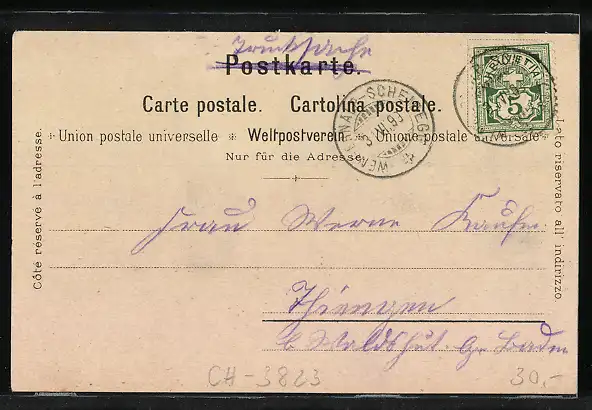 Drucksache
Postkarte.
Carte postale. Cartolina postale.
Union postale universelle * Weltpostverein * Unione postale universale
Nur für die Adresse.
Côté réservé à l'adresse.
Lato riservato all' indirizzo
HELVETIA
5
WENGERNALP-SCHEIDEGG
Frau Werne Kaufm.
Thiengen
b Waldshut. Baden
CH-3823
30,-